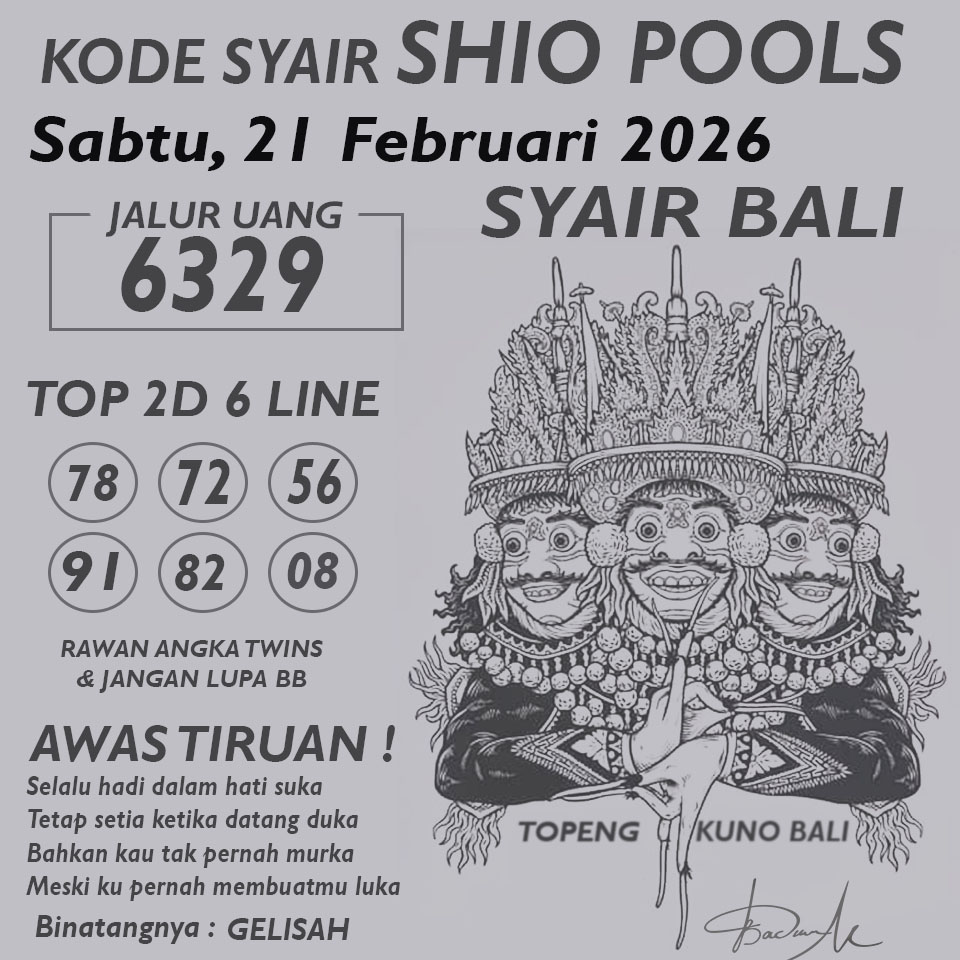 KODE SYAIR SHIO POOLS
Sabtu, 21 Februari 2026
SYAIR BALI
JALUR UANG
6329
TOP 2D 6 LINE
78 72 56
91 82 08
RAWAN ANGKA TWINS
& JANGAN LUPA BB
AWAS TIRUAN !
Selalu hadi dalam hati suka
Tetap setia ketika datang duka
Bahkan kau tak pernah murka
Meski ku pernah membuatmu luka
Binatangnya : GELISAH
TOPENG KUNO BALI